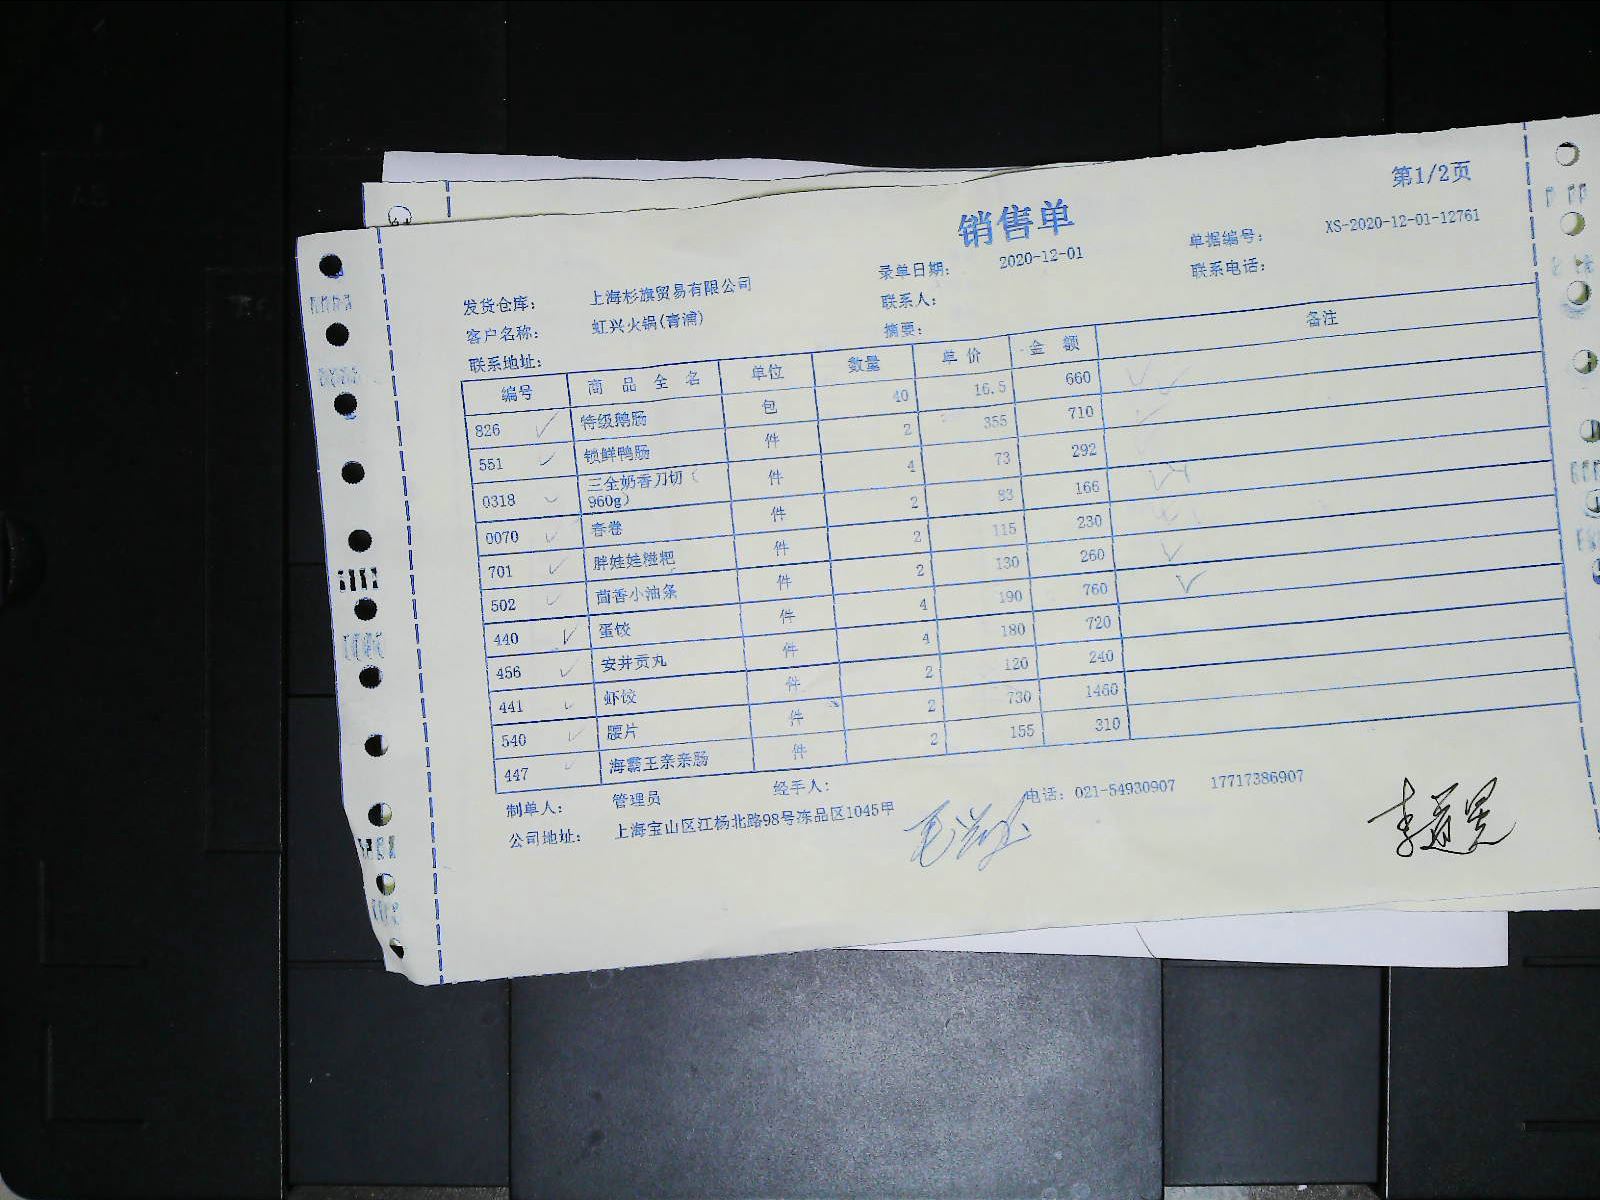 第1/2页
销售单
发货仓库： 上海杉旗贸易有限公司 录单日期： 2020-12-01 单据编号： XS-2020-12-01-12761
客户名称： 虹兴火锅(青浦) 联系人： 联系电话：
联系地址： 摘要：
编号 商品全名 单位 数量 单价 金额 备注
826 特级鹅肠 包 40 16.5 660
551 锁鲜鸭肠 件 2 355 710
0318 三全奶香刀切（960g） 件 4 73 292
0070 春卷 件 2 83 166
701 胖娃娃糍粑 件 2 115 230
502 茴香小油条 件 2 130 260
440 蛋饺 件 4 190 760
456 安井贡丸 件 4 180 720
441 虾饺 件 2 120 240
540 腰片 件 2 730 1460
447 海霸王亲亲肠 件 2 155 310
制单人： 管理员 经手人： 电话：021-54930907 17717386907
公司地址： 上海宝山区江杨北路98号冻品区1045甲